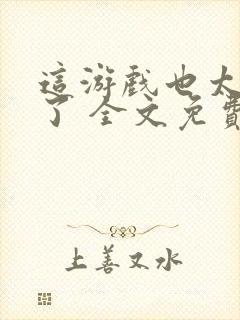 這游戲也太
了 全文免費
上善又水